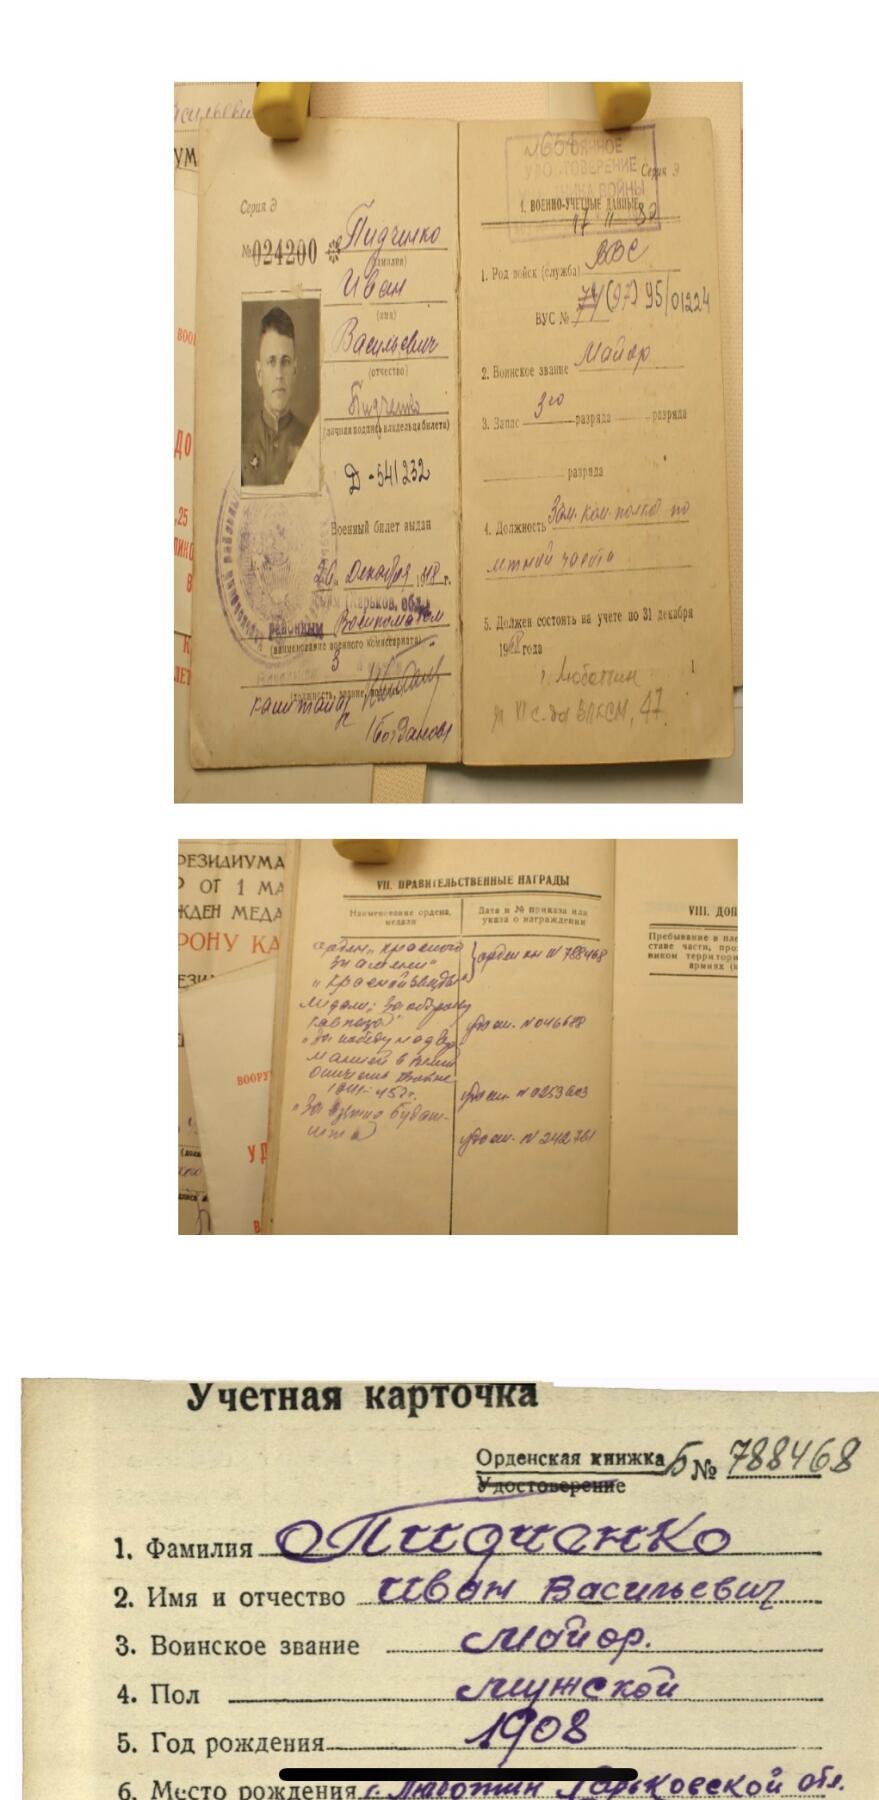 асильеви
УМ
Серия Э
№024200
Пидченко
(фамилия)
Иван
(имя)
Васильевич
(отчество)
Пидченко
(личная подпись владельца билета)
Д-541232
Военный билет выдан
26 Декабря 1948 г.
ким (Харьков. обл.)
районным Военкоматом
(наименование военного комиссариата)
3
(должность, звание, подпись)
капитан
Богданов
№654
УДОСТОВЕРЕНИЕ
УЧАСТНИКА ВОЙНЫ
Серия Э
1. ВОЕННО-УЧЕТНЫЕ ДАННЫЕ
17 11 80
1. Род войск (служба) ВВС
ВУС № (97) 95/01224
2. Воинское звание Майор
3. Запас 3го разряда разряда
разряда
4. Должность Зам. ком. полка по
летной части
5. Должен состоять на учете по 31 декабря
1968 года
1
г. Люботин
ул VI с-да ВЛКСМ, 47
РЕЗИДИУМА
ОТ 1 МА
ЖДЕН МЕДА
РОНУ КА
ЕЗИ
ВООРУ
УД
В
VII. ПРАВИТЕЛЬСТВЕННЫЕ НАГРАДЫ
Наименование ордена, медали
Дата и № приказа или указа о награждении
орден „Красного
знамени"
орден кн № 788468
„Красной звезды"
Медали: За оборону
Кавказа"
удост. № 046688
„За победу над Гер-
манией в Великой
Отечеств. войне
1941-45 г.г.
удост. № 0253603
„За взятие Будап-
ешта"
удост. № 242761
VIII. ДОП
Пребывание в
ставе части, про
ником территори
армиях (
Учетная карточка
Орденская книжка Б № 788468
Удостоверение
1. Фамилия Пидченко
2. Имя и отчество Иван Васильевич
3. Воинское звание Майор.
4. Пол мужской
5. Год рождения 1908
6. Место рождения г. Люботин Харьковской обл.